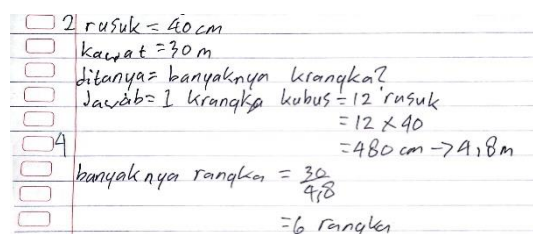 2 rusuk = 40 cm
kawat = 30 m
ditanya = banyaknya krangka?
Jawab = 1 krangka kubus = 12 rusuk
= 12 x 40
4 = 480 cm -> 4,8 m
banyak nya rangka = 30/4,8
= 6 rangka